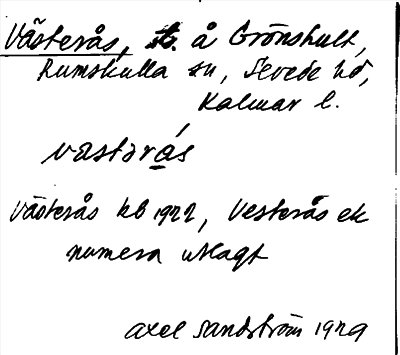 Västerås, å Grönshult,
Rumskulla sn, Sevede hd,
Kalmar l.
västərås
Västerås kb 1922, Vesterås ek
numera utlagt
Axel Sandström 1929